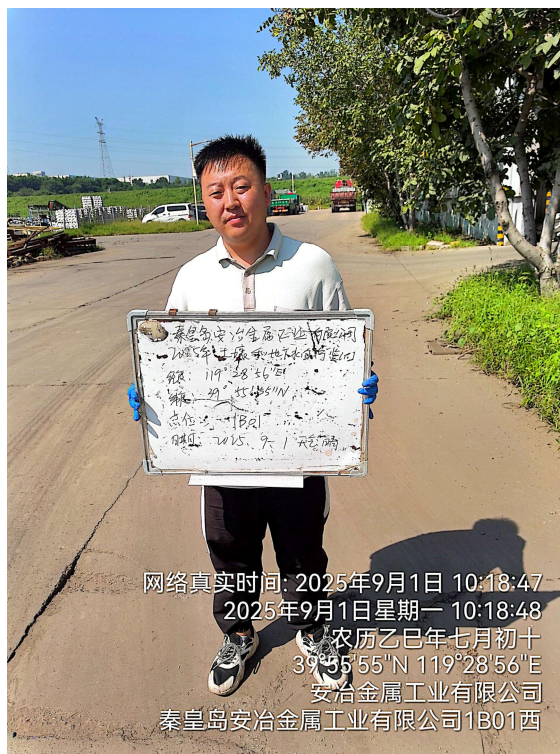 秦皇岛安冶金属工业有限公司
2025年土壤和地下水自行监测
经度: 119° 28′56″E
纬度: 39° 55′55″N
点位: 1B01
日期: 2025. 9. 1 天气: 晴
网络真实时间: 2025年9月1日 10:18:47
2025年9月1日星期一 10:18:48
农历乙巳年七月初十
39°55'55"N 119°28'56"E
安冶金属工业有限公司
秦皇岛安冶金属工业有限公司1B01西